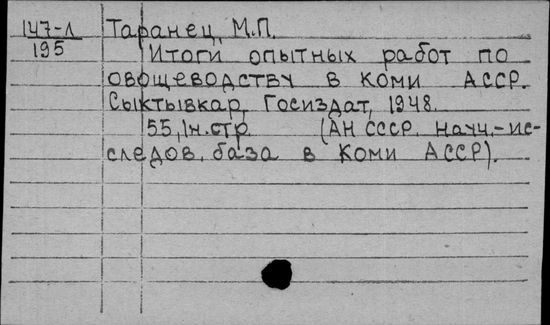 147-Л Таранец, М.П.
195 Итоги опытных работ по
овощеводству в Коми АССР.
Сыктывкар, Госиздат, 1948.
55, 1н. стр (АН СССР. научн.-ис-
следов. база в Коми АССР).